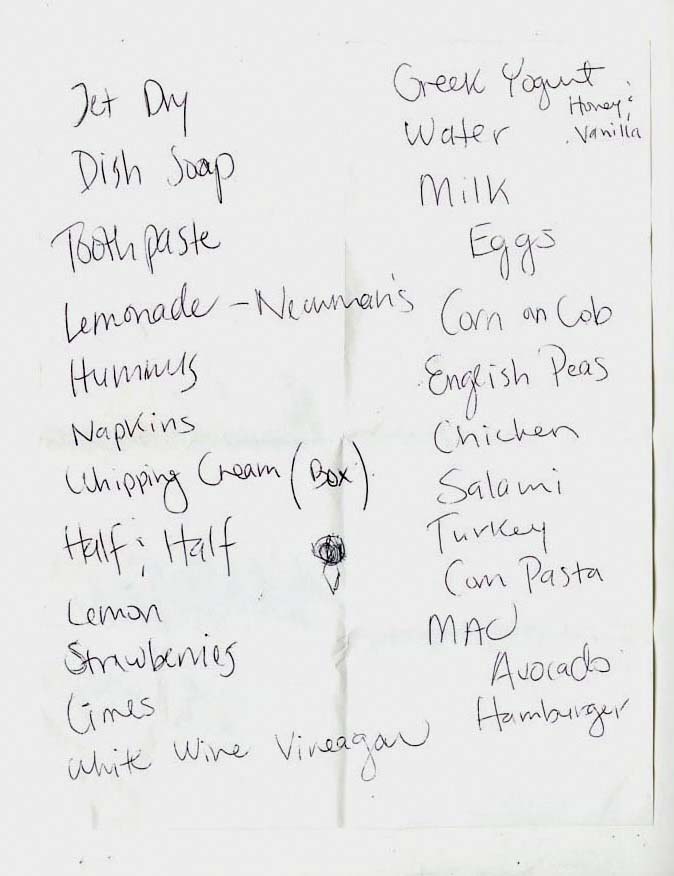 Jet Dry
Dish Soap
Toothpaste
Lemonade - Newman's
Hummus
Napkins
Whipping Cream (Box)
Half & Half
Lemon
Strawberries
Limes
White Wine Vineagar
Greek Yogurt
Honey &
Vanilla
Water
Milk
Eggs
Corn on Cob
English Peas
Chicken
Salami
Turkey
Corn Pasta
MAC
Avocado
Hamburger